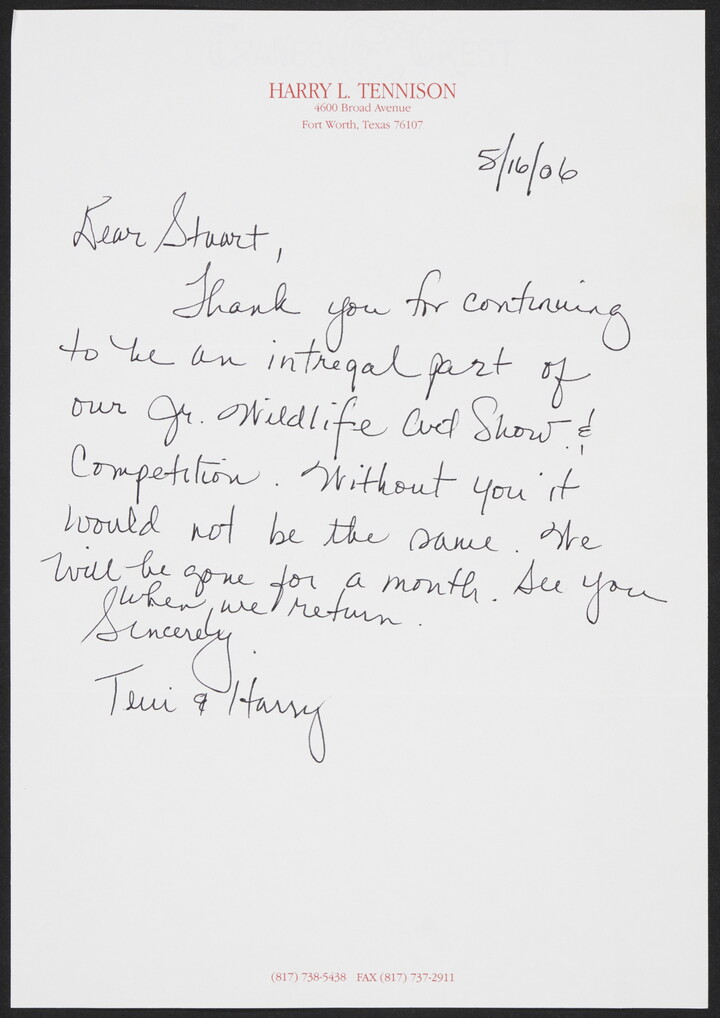 HARRY L. TENNISON
4600 Broad Avenue
Fort Worth, Texas 76107
5/16/06
Dear Stuart,
Thank you for continuing
to be an intregal part of
our Jr. Wildlife Art Show &
Competition. Without you it
would not be the same. We
will be gone for a month. See you
when we return.
Sincerely.
Teri & Harry
(817) 738-5438 FAX (817) 737-2911